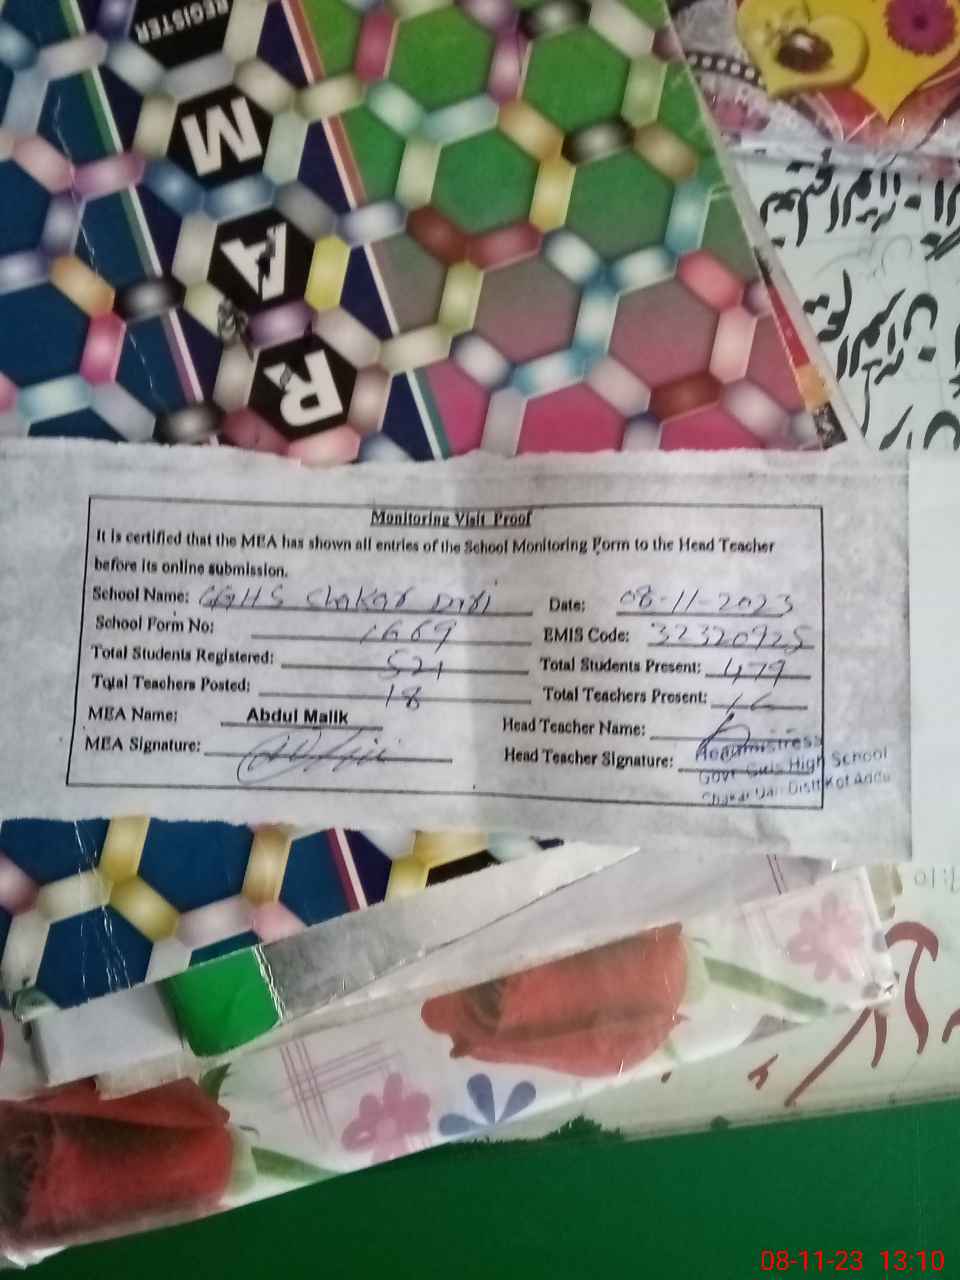 REGISTER
M
A
R
Monitoring Visit Proof
It is certified that the MEA has shown all entries of the School Monitoring Form to the Head Teacher
before its online submission.
School Name: GGHS Chakar Dari Date: 08-11-2023
School Form No: 1669 EMIS Code: 32320925
Total Students Registered: 521 Total Students Present: 479
Total Teachers Posted: 18 Total Teachers Present: 16
MEA Name: Abdul Malik Head Teacher Name:
MEA Signature: Head Teacher Signature:
Headmistress
Govt Girls High School
Distt Kot Addu
08-11-23 13:10